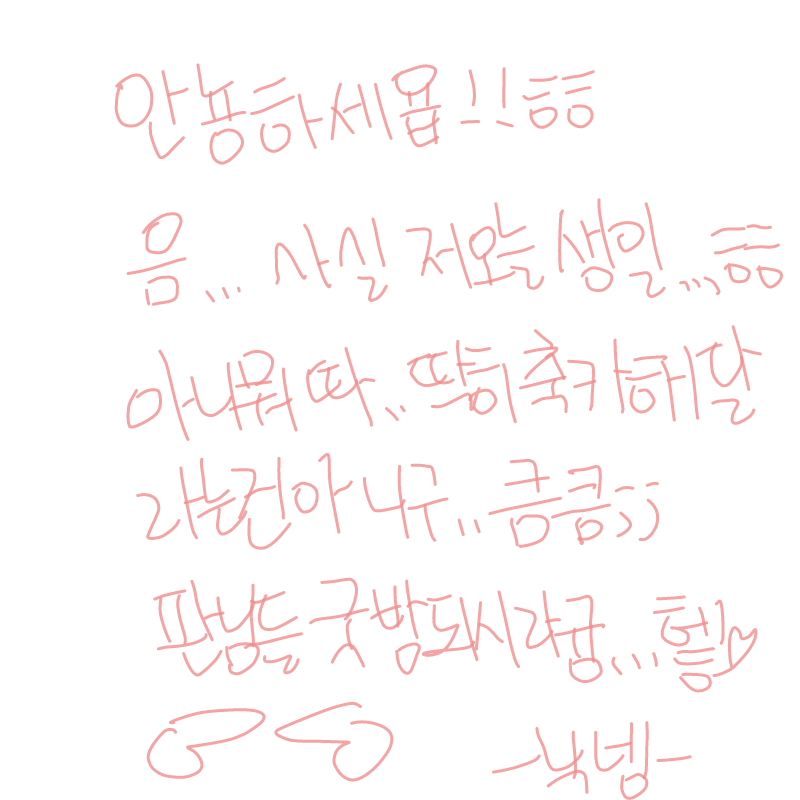 안뇽하세욥!!ㅎㅎ
음... 사실 저 오늘 생일...ㅎㅎ
아니 뭐 따.. 딱히 축카해달
라는건 아니구.. 큼큼;;
판님들 굿밤되시라굽...헿♡
-닉넴-